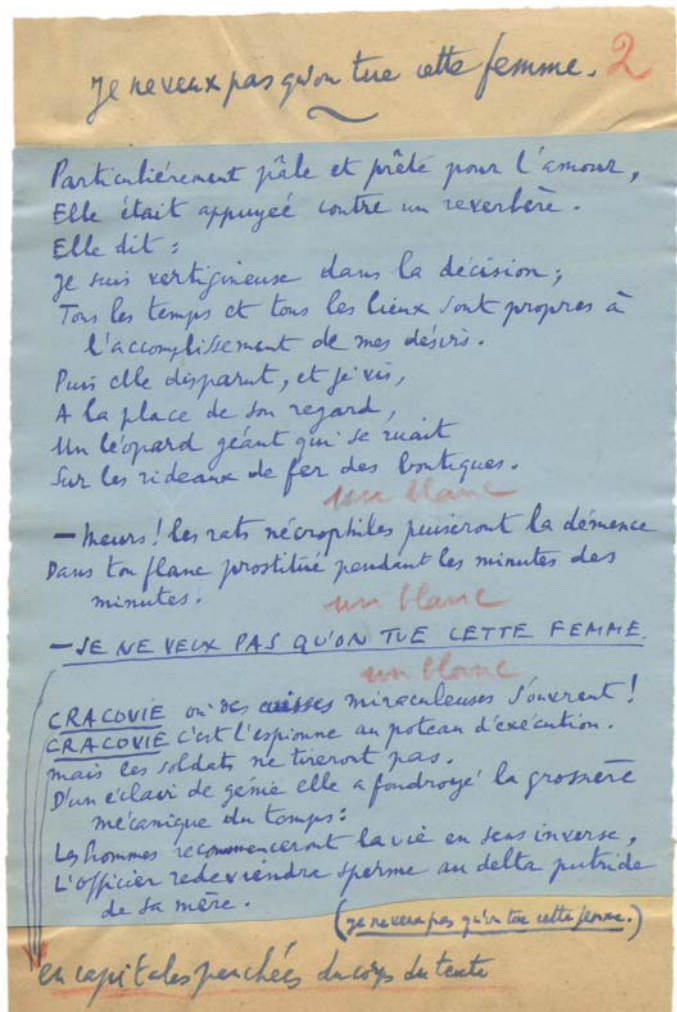 Je ne veux pas qu'on tue cette femme. 2
Particulièrement pâle et prête pour l'amour,
Elle était appuyée contre un reverbère.
Elle dit :
Je suis vertigineuse dans la décision;
Tous les temps et tous les lieux sont propres à
l'accomplissement de mes désirs.
Puis elle disparut, et je vis,
A la place de son regard,
Un léopard géant qui se ruait
Sur les rideaux de fer des boutiques.
un blanc
— Meurs ! les rats nécrophiles puiseront la démence
Dans ton flanc prostitué pendant les minutes des
minutes.
un blanc
— JE NE VEUX PAS QU'ON TUE CETTE FEMME.
un blanc
CRACOVIE où des cuisses miraculeuses s'ouvrent !
CRACOVIE c'est l'espionne au poteau d'exécution.
mais les soldats ne tireront pas.
D'un éclair de génie elle a foudroyé la grossière
mécanique du temps :
Les hommes recommenceront la vie en sens inverse,
L'officier redeviendra sperme au delta putride
de sa mère.
(je ne veux pas qu'on tue cette femme.)
en capitales penchées du corps du texte